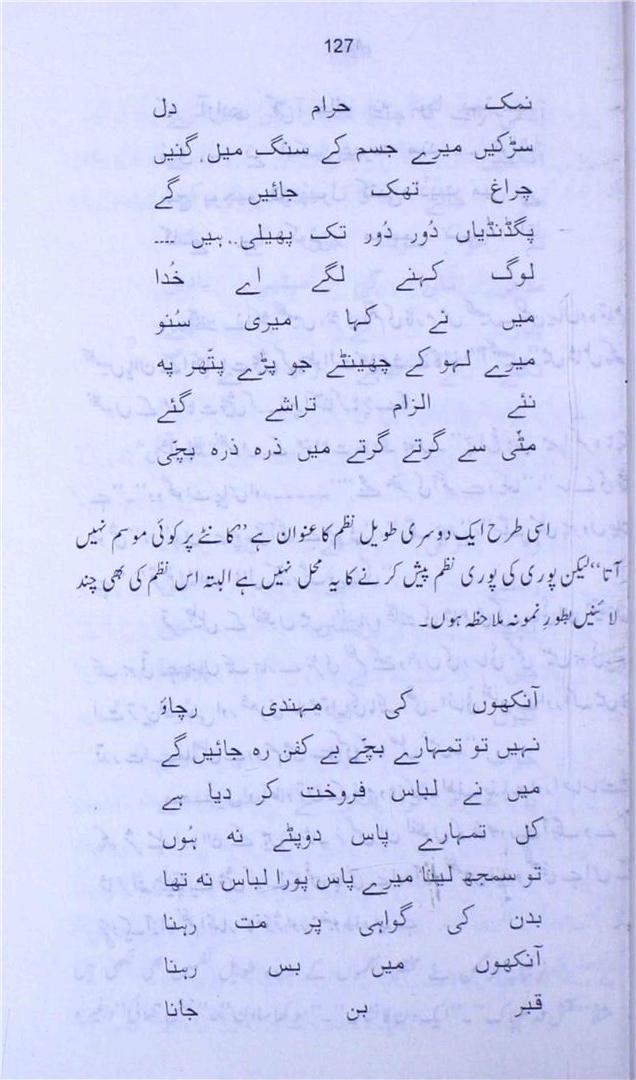 127
نمک حرام دل
سڑکیں میرے جسم کے سنگ میل گنیں
چراغ تھک جائیں گے
پگڈنڈیاں دُور دُور تک پھیلی.. ہیں ....
لوگ کہنے لگے اے خُدا
میں نے کہا میری سُنو
میرے لہو کے چھینٹے جو پڑے پتّھر پہ
نئے الزام تراشے گئے
مٹّی سے گرتے گرتے میں ذرہ ذرہ بچّی
اسی طرح ایک دوسری طویل نظم کا عنوان ہے ’’کانٹے پر کوئی موسم نہیں
آتا‘‘ لیکن پوری کی پوری نظم پیش کرنے کا یہ محل نہیں ہے البتہ اس نظم کی بھی چند
لائنیں بطورِ نمونہ ملاحظہ ہوں۔
آنکھوں کی مہندی رچاؤ
نہیں تو تمہارے بچّے بے کفن رہ جائیں گے
میں نے لباس فروخت کر دیا ہے
کل تمہارے پاس دوپٹے نہ ہُوں
تو سمجھ لینا میرے پاس پورا لباس نہ تھا
بدن کی گواہی پر مت رہنا
آنکھوں میں بس رہنا
قبر بن جانا